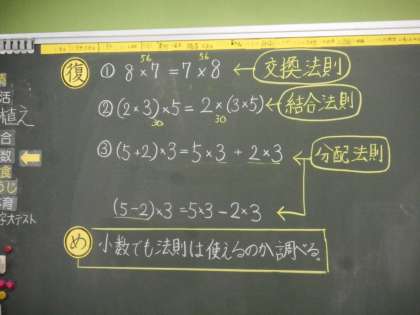 復
56 56
① 8×7=7×8 ← 交換法則
② (2×3)×5=2×(3×5) ← 結合法則
30 30
③ (5+2)×3=5×3+2×3 ← 分配法則
(5-2)×3=5×3-2×3
め 小数でも法則は使えるのか調べる。
活
植え
合
数
食
うじ
育
字大テスト